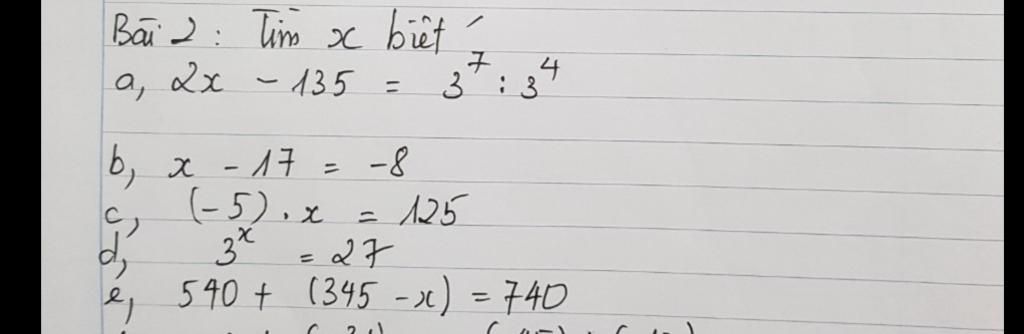 Bài 2: Tìm x biết
a, 2x - 135 = 3⁷ : 3⁴
b, x - 17 = -8
c, (-5) . x = 125
d, 3ˣ = 27
e, 540 + (345 - x) = 740